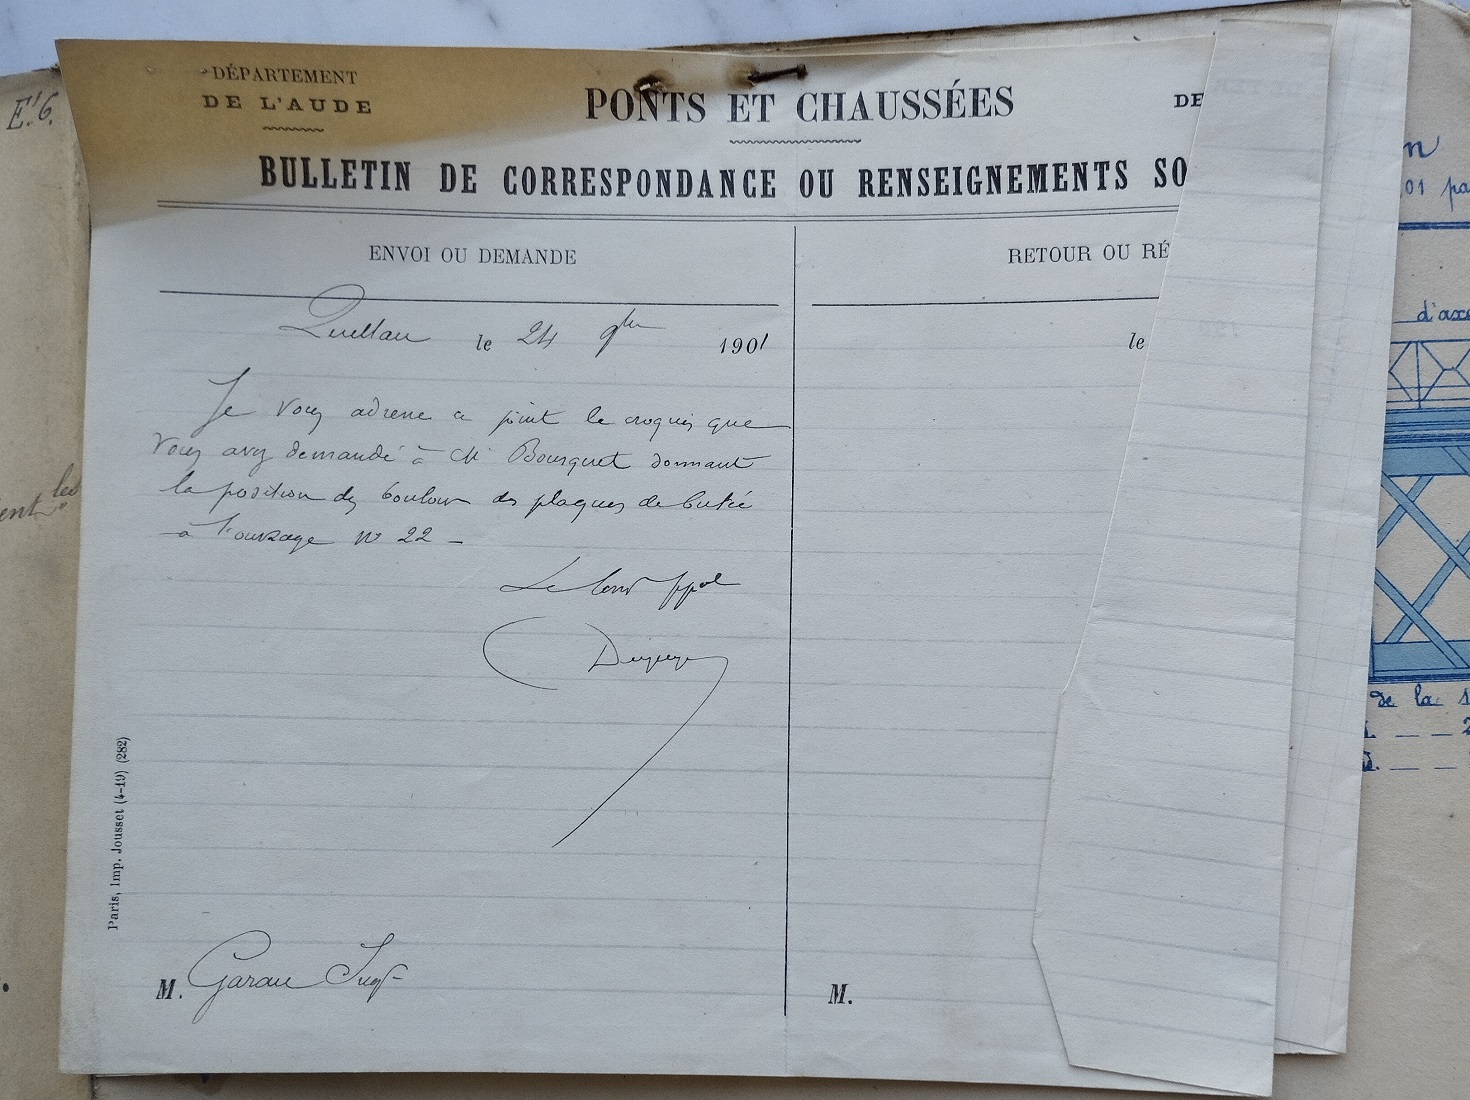 E! 6.
DÉPARTEMENT
DE L'AUDE
PONTS ET CHAUSSÉES
DE
BULLETIN DE CORRESPONDANCE OU RENSEIGNEMENTS SO
ENVOI OU DEMANDE
Quillan le 24 9bre 1901
Je vous adresse ci joint le croquis que
vous avez demandé à Mr Bousquet donnant
la position des boulons des plaques de butée
à l'ouvrage no 22 -
Le Cond ppal
M. Garau Ingr
Paris, Imp. Jousset (4-19) (282)
RETOUR OU RÉ
le
M.
les
ent
n
01 pa
d'axe
de la